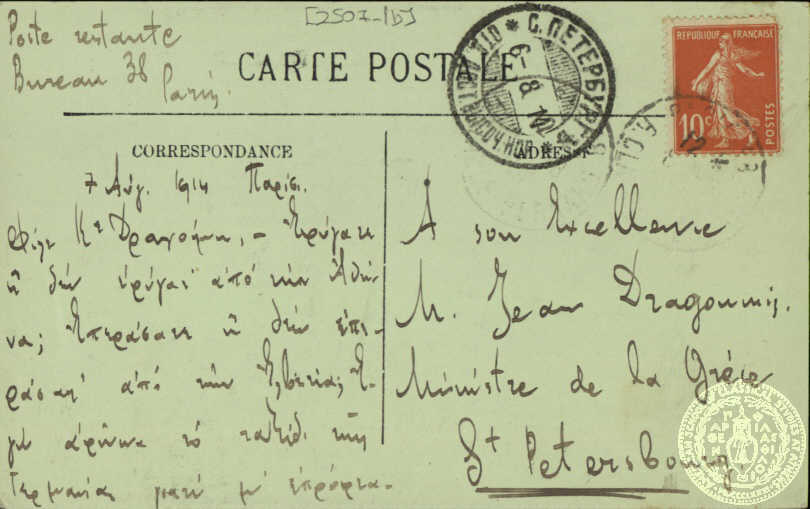 [2507-1b]
Poste restante
Bureau 38
Paris.
CARTE POSTALE
С. ПЕТЕРБУРГЪ
6-8 14
REPUBLIQUE FRANÇAISE
10c
POSTES
CORRESPONDANCE
ADRESSE
7 Αύγ. 1914 Παρίσι.
Φίλε Κε Δραγούμη, – Εφύγατε
ή δεν εφύγατ' από την Αθήνα;
Επεράσατε ή δεν επεράσατ'
από την Ελβετία; Εγώ
άφησα το ταξίδι της
Γερμανίας γιατί μ'
À son Excellence
M. Jean Dragoumis.
Ministre de la Grèce
St Petersbourg